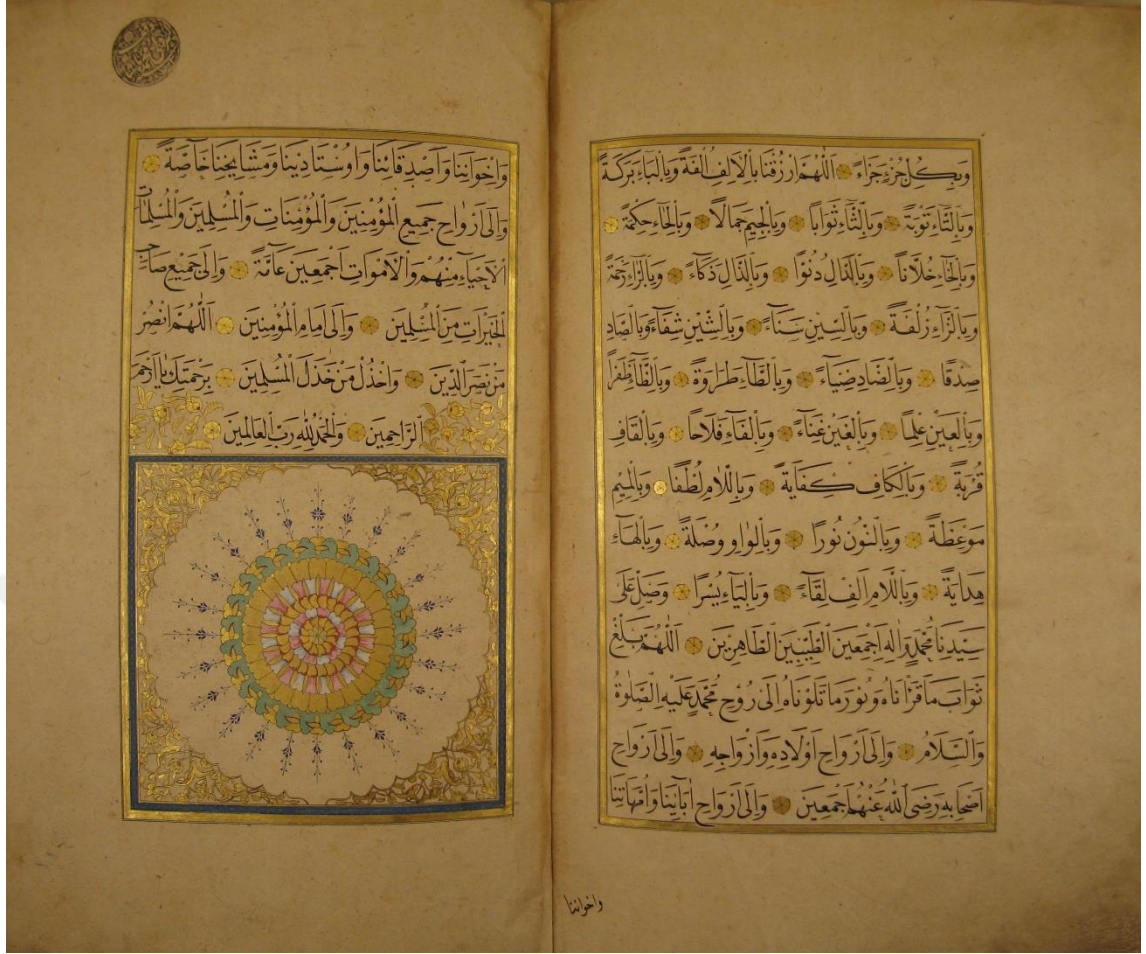 وَبِكُلِّ جُزْءٍ جَزَاءً اَللّٰهُمَّ ارْزُقْنَا بِالْاَلِفِ اُلْفَةً وَبِالْبَاءِ بَرَكَةً
وَبِالتَّاءِ تَوْبَةً وَبِالثَّاءِ ثَوَابًا وَبِالْجِيمِ جَمَالًا وَبِالْحَاءِ حِكْمَةً
وَبِالْخَاءِ خُلَّانًا وَبِالدَّالِ دُنُوًّا وَبِالذَّالِ ذَكَاءً وَبِالرَّاءِ رَحْمَةً
وَبِالزَّاءِ زُلْفَةً وَبِالسِّينِ سَنَاءً وَبِالشِّينِ شِفَاءً وَبِالصَّادِ
صِدْقًا وَبِالضَّادِ ضِيَاءً وَبِالطَّاءِ طَرَاوَةً وَبِالظَّاءِ ظَفَرًا
وَبِالْعَيْنِ عِلْمًا وَبِالْغَيْنِ غِنَاءً وَبِالْفَاءِ فَلَاحًا وَبِالْقَافِ
قُرْبَةً وَبِالْكَافِ كِفَايَةً وَبِاللَّامِ لُطْفًا وَبِالْمِيمِ
مَوْعِظَةً وَبِالنُّونِ نُورًا وَبِالْوَاوِ وُصْلَةً وَبِالْهَاءِ
هِدَايَةً وَبِاللَّامِ اَلِفْ لِقَاءً وَبِالْيَاءِ يُسْرًا وَصَلِّ عَلٰى
سَيِّدِنَا مُحَمَّدٍ وَاٰلِهِ اَجْمَعِينَ الطَّيِّبِينَ الطَّاهِرِينَ اَللّٰهُمَّ بَلِّغْ
ثَوَابَ مَا قَرَاْنَاهُ وَنُورَ مَا تَلَوْنَاهُ اِلٰى رُوحِ مُحَمَّدٍ عَلَيْهِ الصَّلٰوةُ
وَالسَّلَامُ وَاِلٰى اَرْوَاحِ اَوْلَادِهِ وَاَزْوَاجِهِ وَاِلٰى اَرْوَاحِ
اَصْحَابِهِ رَضِىَ اللّٰهُ عَنْهُمْ اَجْمَعِينَ وَاِلٰى اَرْوَاحِ اٰبَائِنَا وَاُمَّهَاتِنَا
واخواننا
وَاِخْوَانِنَا وَاَصْدِقَائِنَا وَاُوسْتَاذِينَا وَمَشَايِخِنَا خَاصَّةً
وَاِلٰى اَرْوَاحِ جَمِيعِ الْمُؤْمِنِينَ وَالْمُؤْمِنَاتِ وَالْمُسْلِمِينَ وَالْمُسْلِمَاتِ
اَلْاَحْيَاءِ مِنْهُمْ وَالْاَمْوَاتِ اَجْمَعِينَ عَامَّةً وَاِلٰى جَمِيعِ صَاحِبِ
الْخَيْرَاتِ مِنَ الْمُسْلِمِينَ وَاِلٰى اِمَامِ الْمُؤْمِنِينَ اَللّٰهُمَّ انْصُرْ
مَنْ نَصَرَ الدِّينَ وَاخْذُلْ مَنْ خَذَلَ الْمُسْلِمِينَ بِرَحْمَتِكَ يَا اَرْحَمَ
الرَّاحِمِينَ وَالْحَمْدُ لِلّٰهِ رَبِّ الْعَالَمِينَ